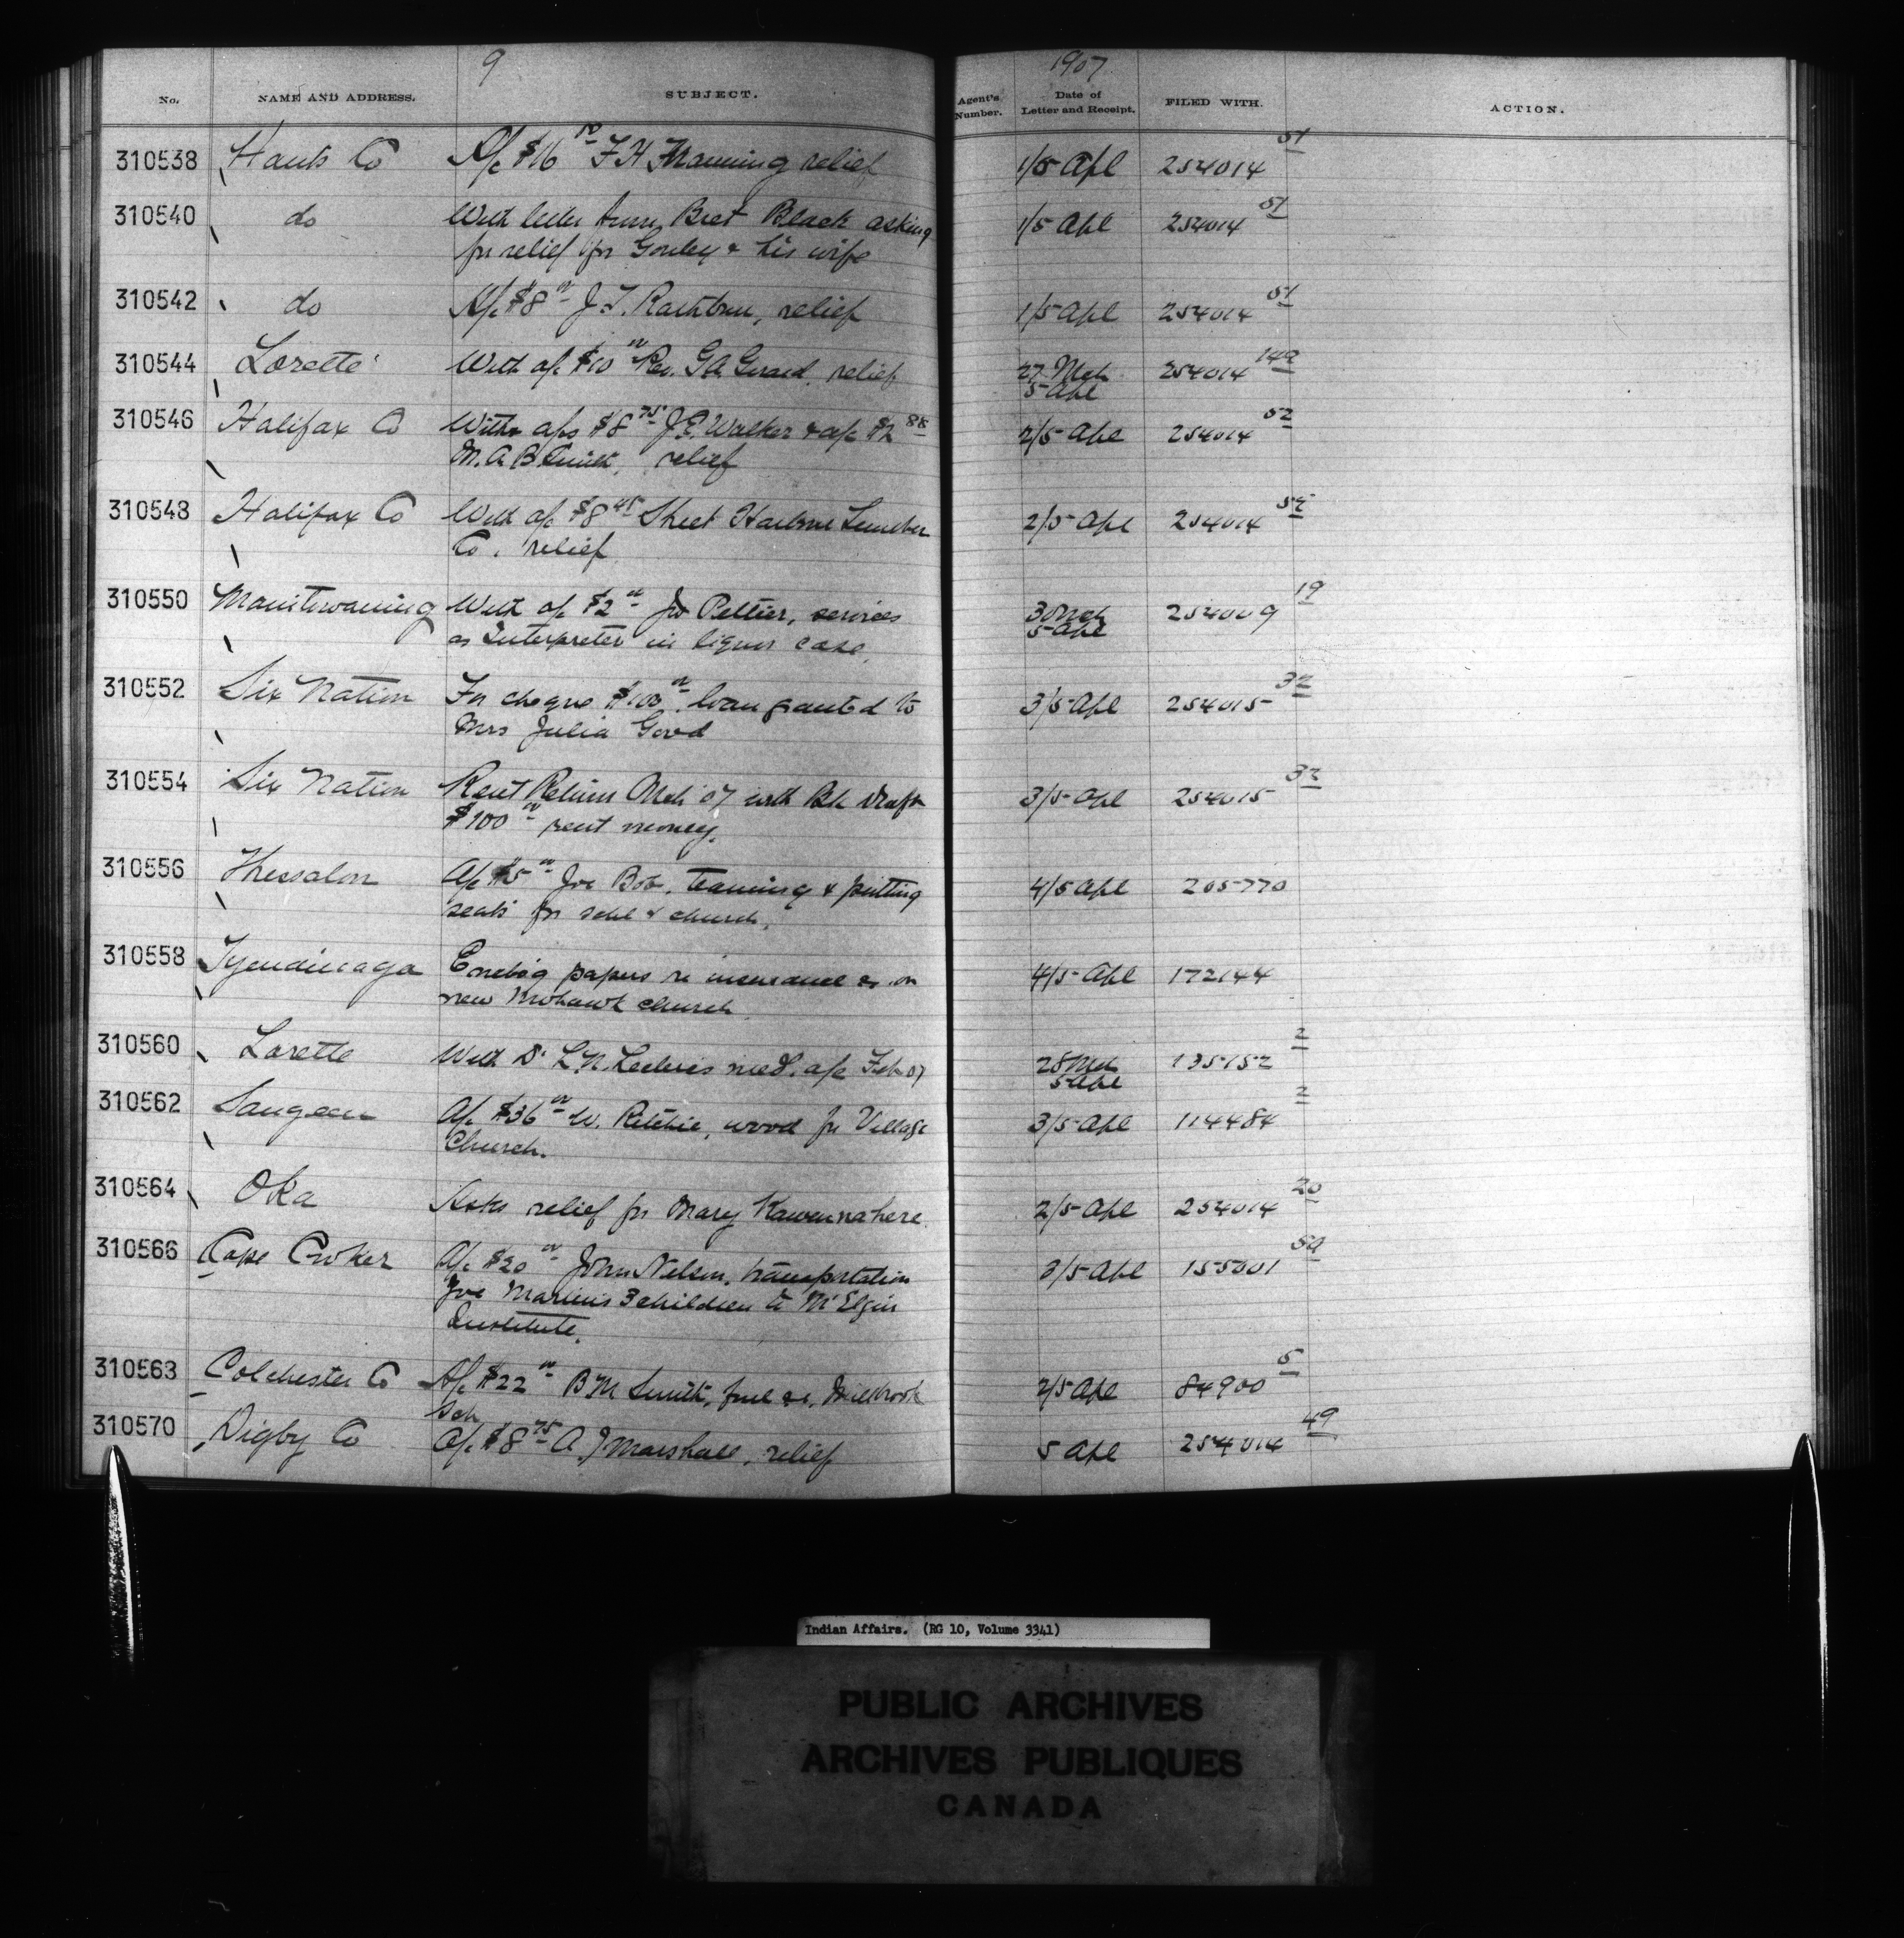 9
1907
No. NAME AND ADDRESS. SUBJECT. Agent's Number. Date of Letter and Receipt. FILED WITH. ACTION.
310538 Hants Co A/c $16 F H Manning relief 1/5 Apl 254014 51
310540 do With letter from Bret Black asking 1/5 Apl 254014 51
for relief for Gouley & his wife
310542 do A/c $8 00 J. T. Rathbun, relief 1/5 Apl 254014 51
310544 Lorette With a/c $10 00 Rev. G A Giraed, relief 27 Mch 254014 149
5 Apl
310546 Halifax Co With a/cs $8 75 J. E. Walker & a/c $2 88 2/5 Apl 254014 52
M. A B Smith, relief
310548 Halifax Co With a/c $8 45 Sheet Harbour Lumber 2/5 Apl 254014 52
Co. relief
310550 Manitowaning With a/c $2 00 Jo Peltier, services 30 Mch 254009 19
as Interpreter in liquor case. 5 Apl
310552 Six Nation For cheque $100 00 loan granted to 3/5 Apl 254015 32
Mrs Julia Good
310554 Six Nation Rent Return Mch '07 with Bk draft 3/5 Apl 254015 32
$100 00 rent money.
310556 Thessalon A/c $5 00 Joe Bob, teaming & putting 4/5 Apl 205770
seats for schl & church.
310558 Tyendinaga Enclo'g papers re insurance on
4/5 Apl 172144
new Mohawk church
310560 Lorette With Dr L. N. Leclerc's med. a/c Feb 07 28 Mch 135152 2
5 Apl
310562 Saugeen A/c $36 00 W. Ritchie, wood for Village 3/5 Apl 114484 2
Church.
310564 Oka Asks relief for Mary Kawennahere. 2/5 Apl 254014 20
310566 Cape Croker A/c $20 00 John Nelson, transportation 3/5 Apl 155001
Joe Martin's 3 children to Mt Elgin
Institute.
310568 Colchester Co A/c $22 00 B M Smith, fuel &c, Millbrook 2/5 Apl 84900 5
Sch
310570 Digby Co A/c $8 75 A. J Marshall, relief 5 Apl 254014 49
Indian Affairs. (RG 10, Volume 3341)
PUBLIC ARCHIVES
ARCHIVES PUBLIQUES
CANADA